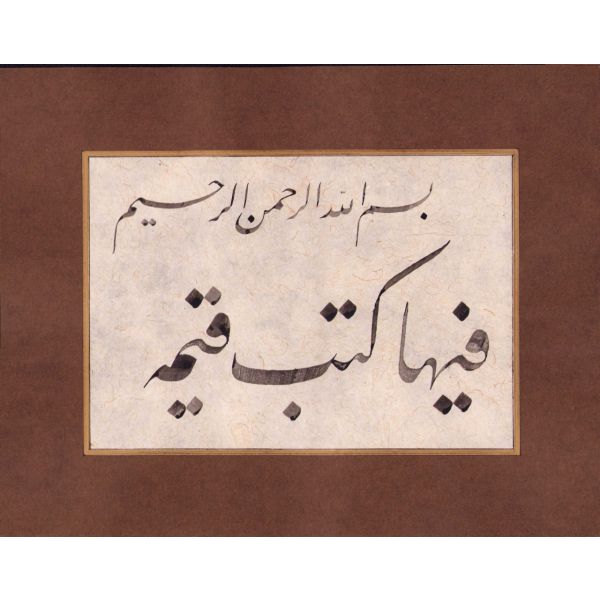 بسم الله الرحمن الرحيم
فيها كتب قيمه